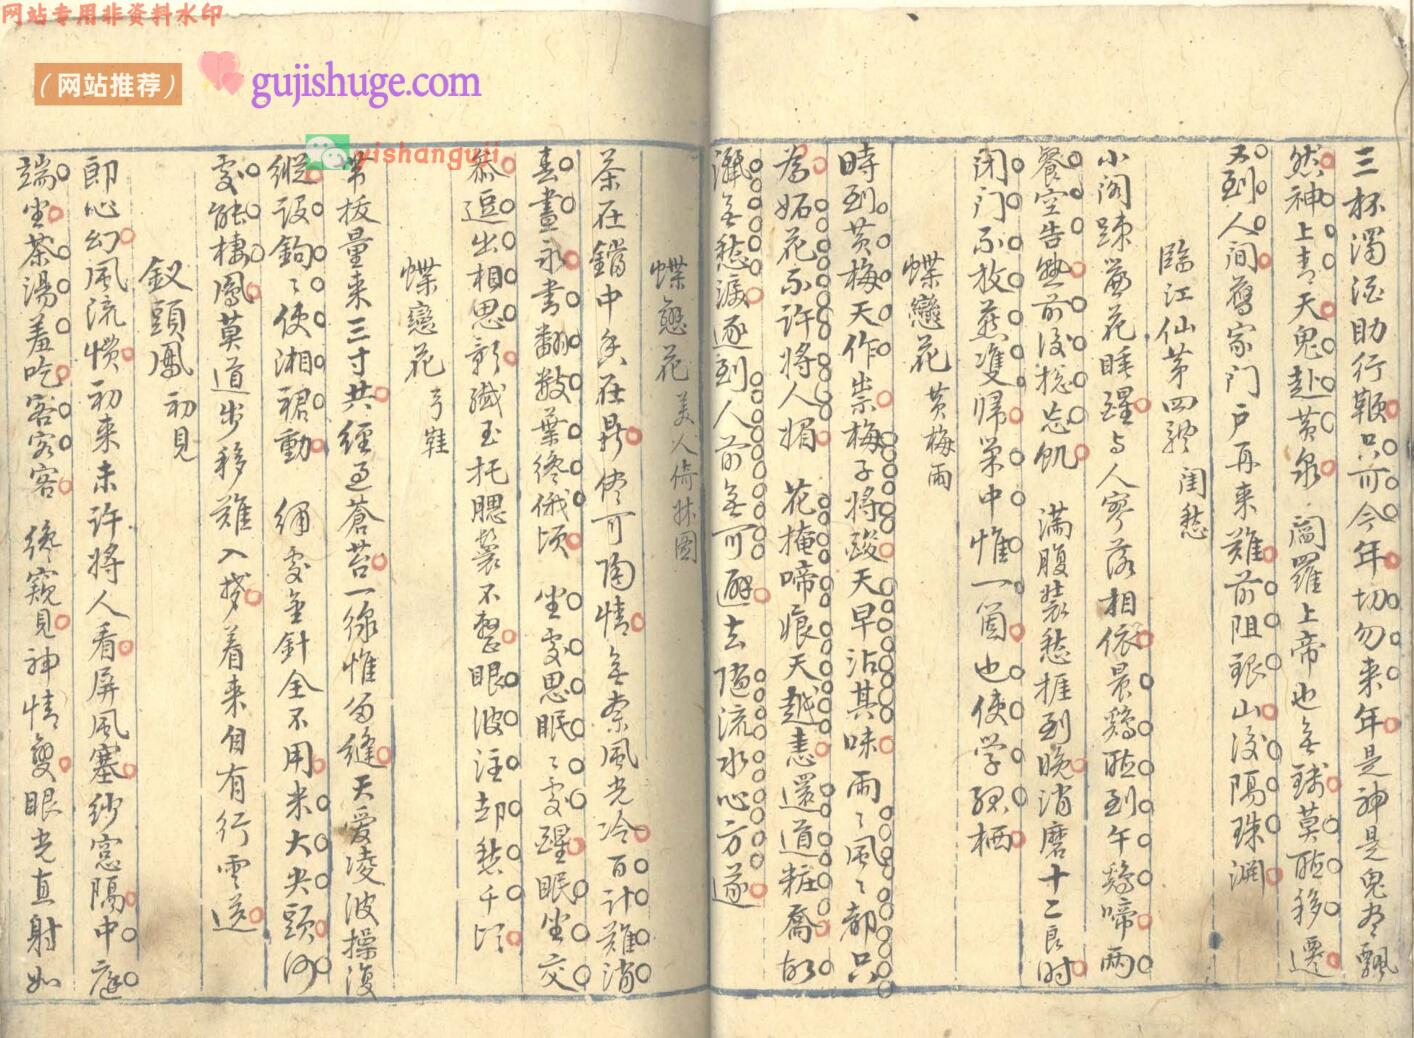 网站专用非资料水印
（网站推荐）
gujishuge.com
yishanguji
三杯濁酒助行鞭只可今年切勿来年是神是鬼孝飄
然神上青天鬼赴黄泉 閻羅上帝也無錢莫聴移遷
不到人间舊家门户再来難前阻銀山後隔珠淵
臨江仙第四體 閨愁
小阁疎簾花睡醒与人寥落相依晨鷄聴到午鷄啼兩
餐空告熟前後搃忘飢 满腹装愁捱到晚消磨十二良时
闭门不放燕雙归巢中惟一箇也使学孤栖
蝶戀花 黄梅雨
時到黄梅天作祟梅子将酸天早沾其味雨〻風〻都只
為妬花不许将人媚 花掩啼痕天越恚還道粧喬故
灑無愁淚逐到人前無可避去随流水心方遂
蝶戀花 美人倚牀圖
茶在鐺中香在鼎侭可陶情無奈風光冷百计難消
春晝永書翻數葉終俄頃 坐處思眠〻處醒眠坐交
恭逗出相思影纖玉托腮鬟不整眼波注却愁千頃
蝶戀花 弓鞋
常把量来三寸共經过蒼苔一線惟留縫天爱凌波操復
縱设鉤〻使湘裙動 绣處無針全不用米大尖頭何
處能棲鳳莫道步移難入夢着来自有行雲送
釵頭鳳 初見
即心幻風流慣初来未许将人看屏風塞纱窓隔中庭
端坐茶湯羞吃客客客 纔窺見神情變眼光直射如